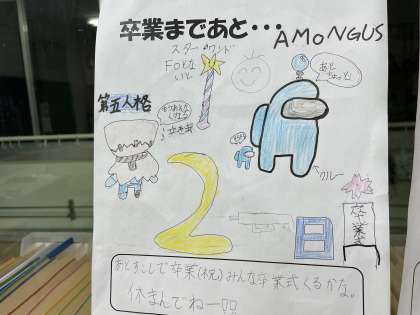 卒業まであと・・・
AMONGUS
スターワンド
FOとな
いと
第五人格
あと
ちょっと
クルー
2
卒業式
あとすこしで卒業(祝)みんな卒業式くるかな。
休まんでねー!!